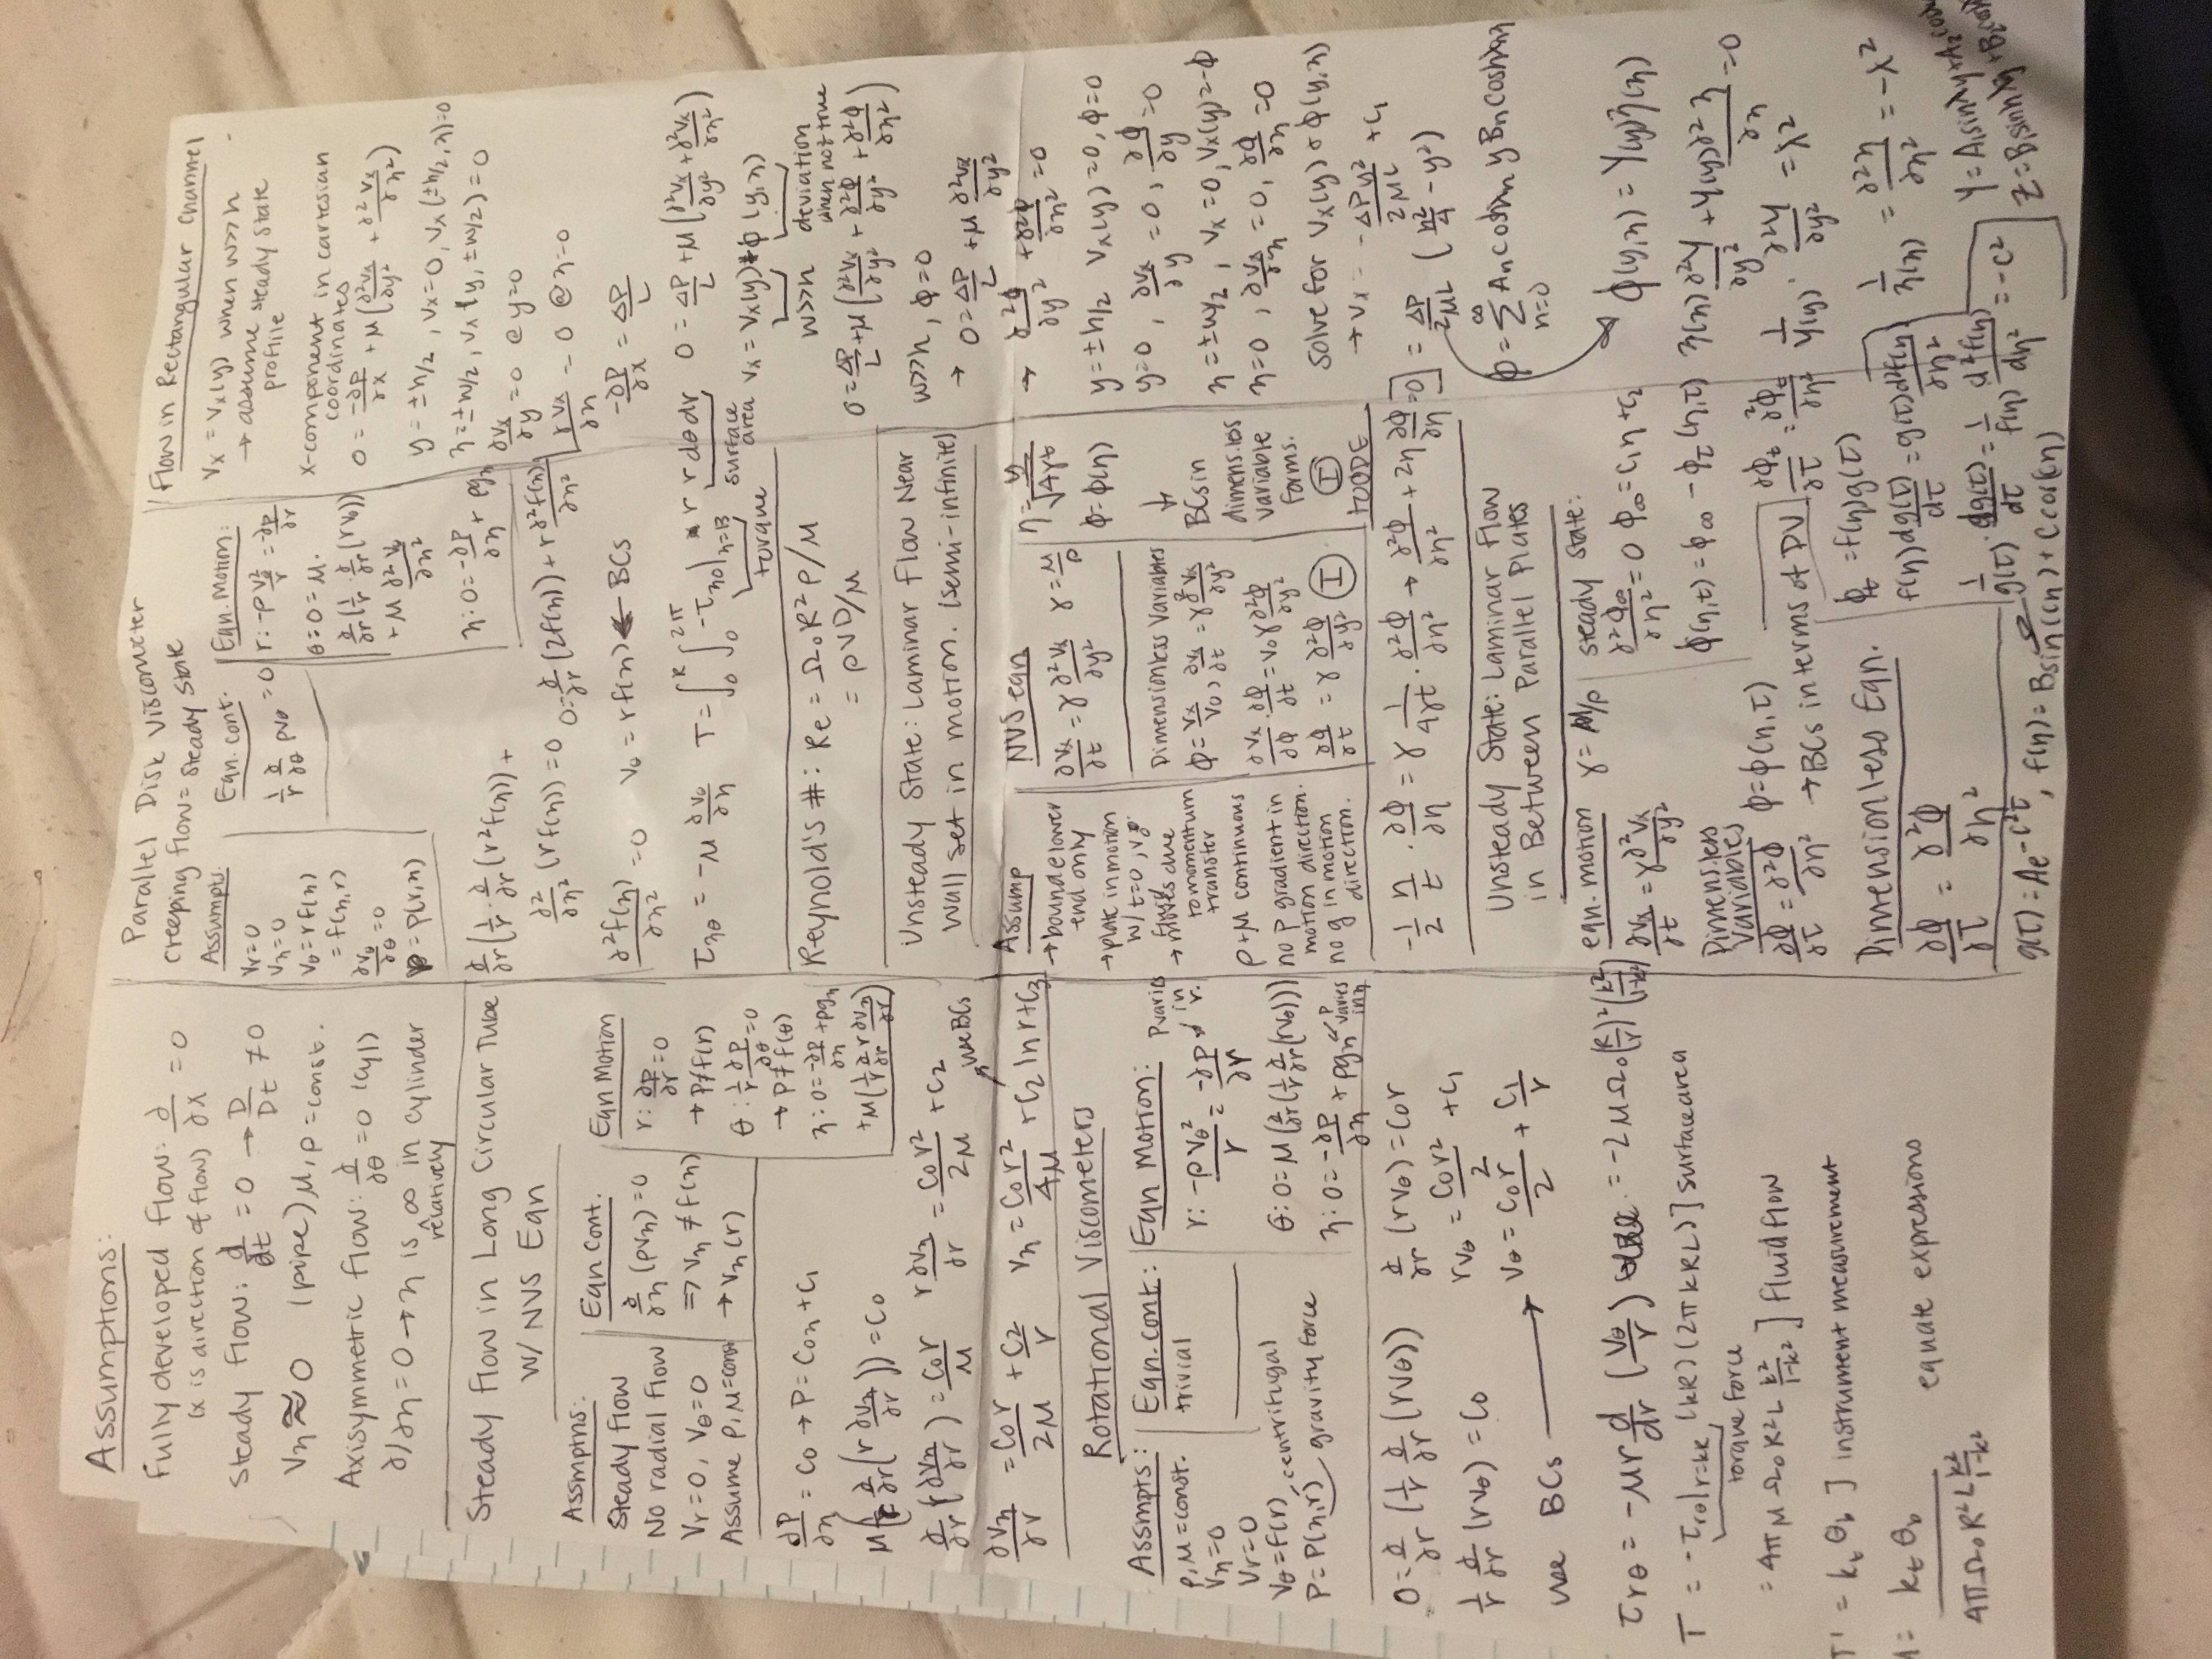 Assumptions:
Fully developed flow: ∂/∂x = 0
(x is direction of flow)
Steady Flow: d/dt = 0 → D/Dt ≠ 0
Vz ≈ 0 (pipe) μ, ρ = const.
Axisymmetric flow: ∂/∂θ = 0 (cyl)
∂/∂z = 0 → z is ∞ in cylinder
relatively
Steady Flow in Long Circular Tube
w/ NVS Eqn
Assmptns:
Steady flow
No radial flow
Vr = 0, Vθ = 0
Assume ρ, μ = const
Eqn Cont.
∂/∂z (ρvz) = 0
⇒ vz ≠ f(z)
→ vz(r)
Eqn Motion
r: ∂p/∂r = 0
→ P ≠ f(r)
θ: 1/r ∂p/∂θ = 0
→ P ≠ f(θ)
z: 0 = -∂p/∂z + ρgz
+ μ(1/r ∂/∂r r ∂vz/∂r)
∂P/∂z = C0 → P = C0z + C1
μ(1/r ∂/∂r (r ∂vz/∂r)) = C0
∂/∂r (r ∂vz/∂r) = C0r/μ   r∂vz/∂r = C0r²/2μ + C2
use BCs
∂vz/∂r = C0r/2μ + C2/r   vz = C0r²/4μ + C2 ln r + C3
Rotational Viscometers
Assmpts:
ρ, μ = const.
Vz = 0
Vr = 0
Vθ = f(r)
P = P(z,r)
centrifugal
gravity force
Eqn. cont:
trivial
Eqn Motion:
r: -ρvθ²/r = -∂p/∂r
P varies in r.
θ: 0 = μ(∂/∂r(1/r ∂/∂r(rvθ)))
z: 0 = -∂p/∂z + ρgz ← P varies in z
0 = ∂/∂r (1/r ∂/∂r (rvθ))   ∂/∂r (rvθ) = C0r
1/r ∂/∂r (rvθ) = C0   rvθ = C0r²/2 + C1
use BCs → vθ = C0r/2 + C1/r
τrθ = -μr d/dr (vθ/r) = -2μΩ0(R/r)²(k²/1-k²)
T = -τrθ|r=kR (kR)(2πkRL) ] surface area
torque force
= 4πμΩ0R²L k²/1-k² ] fluid flow
T' = kt θb ] instrument measurement
= kt θb / 4πΩ0R²L k²/1-k²   equate expressions
Parallel Disk Viscometer
creeping flow = steady state
Assmpts.
Vr = 0
Vz = 0
Vθ = rf(z)
= f(z,r)
∂vθ/∂θ = 0
p = p(r,z)
Eqn. cont.
1/r ∂/∂θ ρvθ = 0
Eqn. Motion:
r: -ρ vθ²/r = -∂p/∂r
θ: 0 = μ.
∂/∂r(1/r · ∂/∂r(rvθ))
+ μ ∂²vθ/∂z²
z: 0 = -∂p/∂z + ρgz
∂/∂r(1/r · ∂/∂r (r²f(z)) +
∂²/∂z² (rf(z)) = 0   0 = ∂/∂r (2f(z)) + r∂²f(z)/∂z²
∂²f(z)/∂z² = 0   vθ = rf(z) ← BCs
τzθ = -μ ∂vθ/∂z   T = ∫0^R ∫0^2π -τzθ|z=B r r dθdr
torque
surface area
Reynold's #: Re = Ω0R²ρ/μ
= ρVD/μ
Unsteady State: Laminar Flow Near
Wall set in motion. (semi-infinite)
Assump
→ bound @ lower
end only
→ plate in motion
w/ t=0, v0
→ fluid moves due
to momentum
transfer
ρ + μ continuous
no p gradient in
motion direction.
no g in motion
direction.
NVS eqn
∂vx/∂t = γ ∂²vx/∂y²   γ = μ/ρ
Dimensionless Variables
φ = vx/v0, ∂vx/∂t = γ∂²vx/∂y²
∂vx/∂φ · ∂φ/∂t = v0γ∂²φ/∂y²
∂φ/∂t = γ ∂²φ/∂y² (I)
η = y/√4γt
φ = φ(η)
↓
BCs in
dimens.less
variable
forms.
(I)
to ODE
-1/2 η/t · ∂φ/∂η = γ 1/4γt · ∂²φ/∂η² → ∂²φ/∂η² + 2η ∂φ/∂η = 0
Unsteady State: Laminar Flow
in Between Parallel Plates
eqn. motion γ = μ/ρ
∂vx/∂t = γ∂²vx/∂y²
Dimens.less
Variables
∂φ/∂τ = ∂²φ/∂η²   φ = φ(η,τ)
→ BCs in terms of DV
Dimensionless Eqn.
∂φ/∂τ = ∂²φ/∂η²
steady state:
∂²φ∞/∂η² = 0   φ∞ = C1η + C2
φ(η,τ) = φ∞ - φt(η,τ)
∂φt/∂τ = ∂²φt/∂η²
φt = f(η)g(τ)
f(η)dg(τ)/dτ = g(τ)d²f(η)/∂η²
1/g(τ) · dg(τ)/dτ = 1/f(η) d²f(η)/dη² = -c²
g(τ) = Ae^-c²τ, f(η) = Bsin(cη) + Ccos(cη)
Flow in Rectangular Channel
Vx = Vx(y) when w>>h
→ assume steady state
profile
x-component in cartesian
coordinates
0 = -∂p/∂x + μ(∂²vx/∂y² + ∂²vx/∂z²)
y = ±h/2, vx=0, vx(±h/2,z)=0
z = ±w/2, vx(y,±w/2) = 0
∂vx/∂y = 0 @ y=0
∂vx/∂z = 0 @ z=0
-∂P/∂x = ΔP/L
0 = ΔP/L + μ(∂²vx/∂y² + ∂²vx/∂z²)
vx = vx(y) + φ(y,z)
w>>h
deviation
when not true
0 = ΔP/L + μ(∂²vx/∂y² + ∂²φ/∂y² + ∂²φ/∂z²)
w>>h, φ=0
→ 0 = ΔP/L + μ ∂²vx/∂y²
→ ∂²φ/∂y² + ∂²φ/∂z² = 0
y = ±h/2 vx(y)=0, φ=0
y=0, ∂vx/∂y = 0, ∂φ/∂y = 0
z = ±w/2, vx=0, vx(y)=-φ
z=0, ∂vx/∂z = 0, ∂φ/∂z = 0
solve for vx(y) & φ(y,z)
→ vx = -ΔPy²/2μL + C1
= ΔP/2μL (h²/4 - y²)
φ = ∞Σn=0 An coshλn y Bn coshλnz
φ(y,z) = Y(y)z(z)
z(z) ∂²Y/∂y² + Y(y)∂²z/∂z = 0
1/Y(y) · ∂²Y/∂y² = λ²
1/z(z) = ∂²z/∂z² = -λ²
Y = A1sinλy + A2cos
Z = B1sinhλy + B2cosh